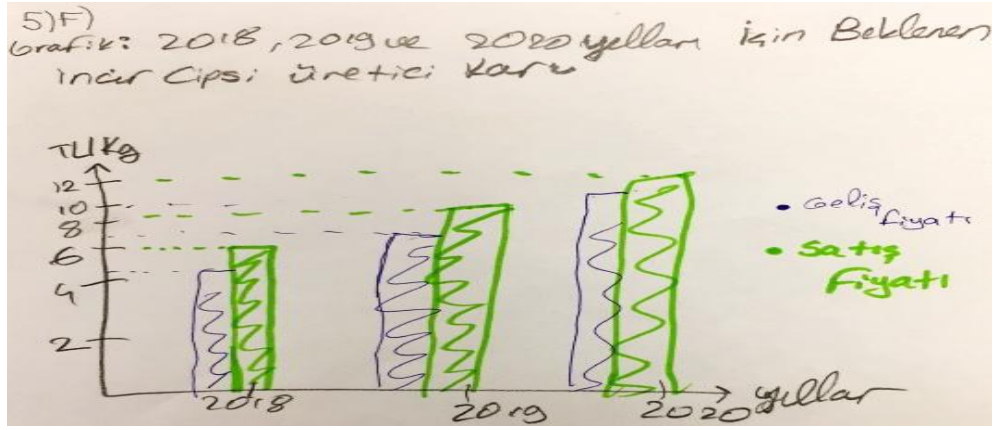 5)F)
Grafik: 2018, 2019 ve 2020 yılları için Beklenen
incir Cipsi üretici karı
TL/Kg
12
10
8
6
4
2
• Geliş fiyatı
• Satış fiyatı
2018 2019 2020 yıllar